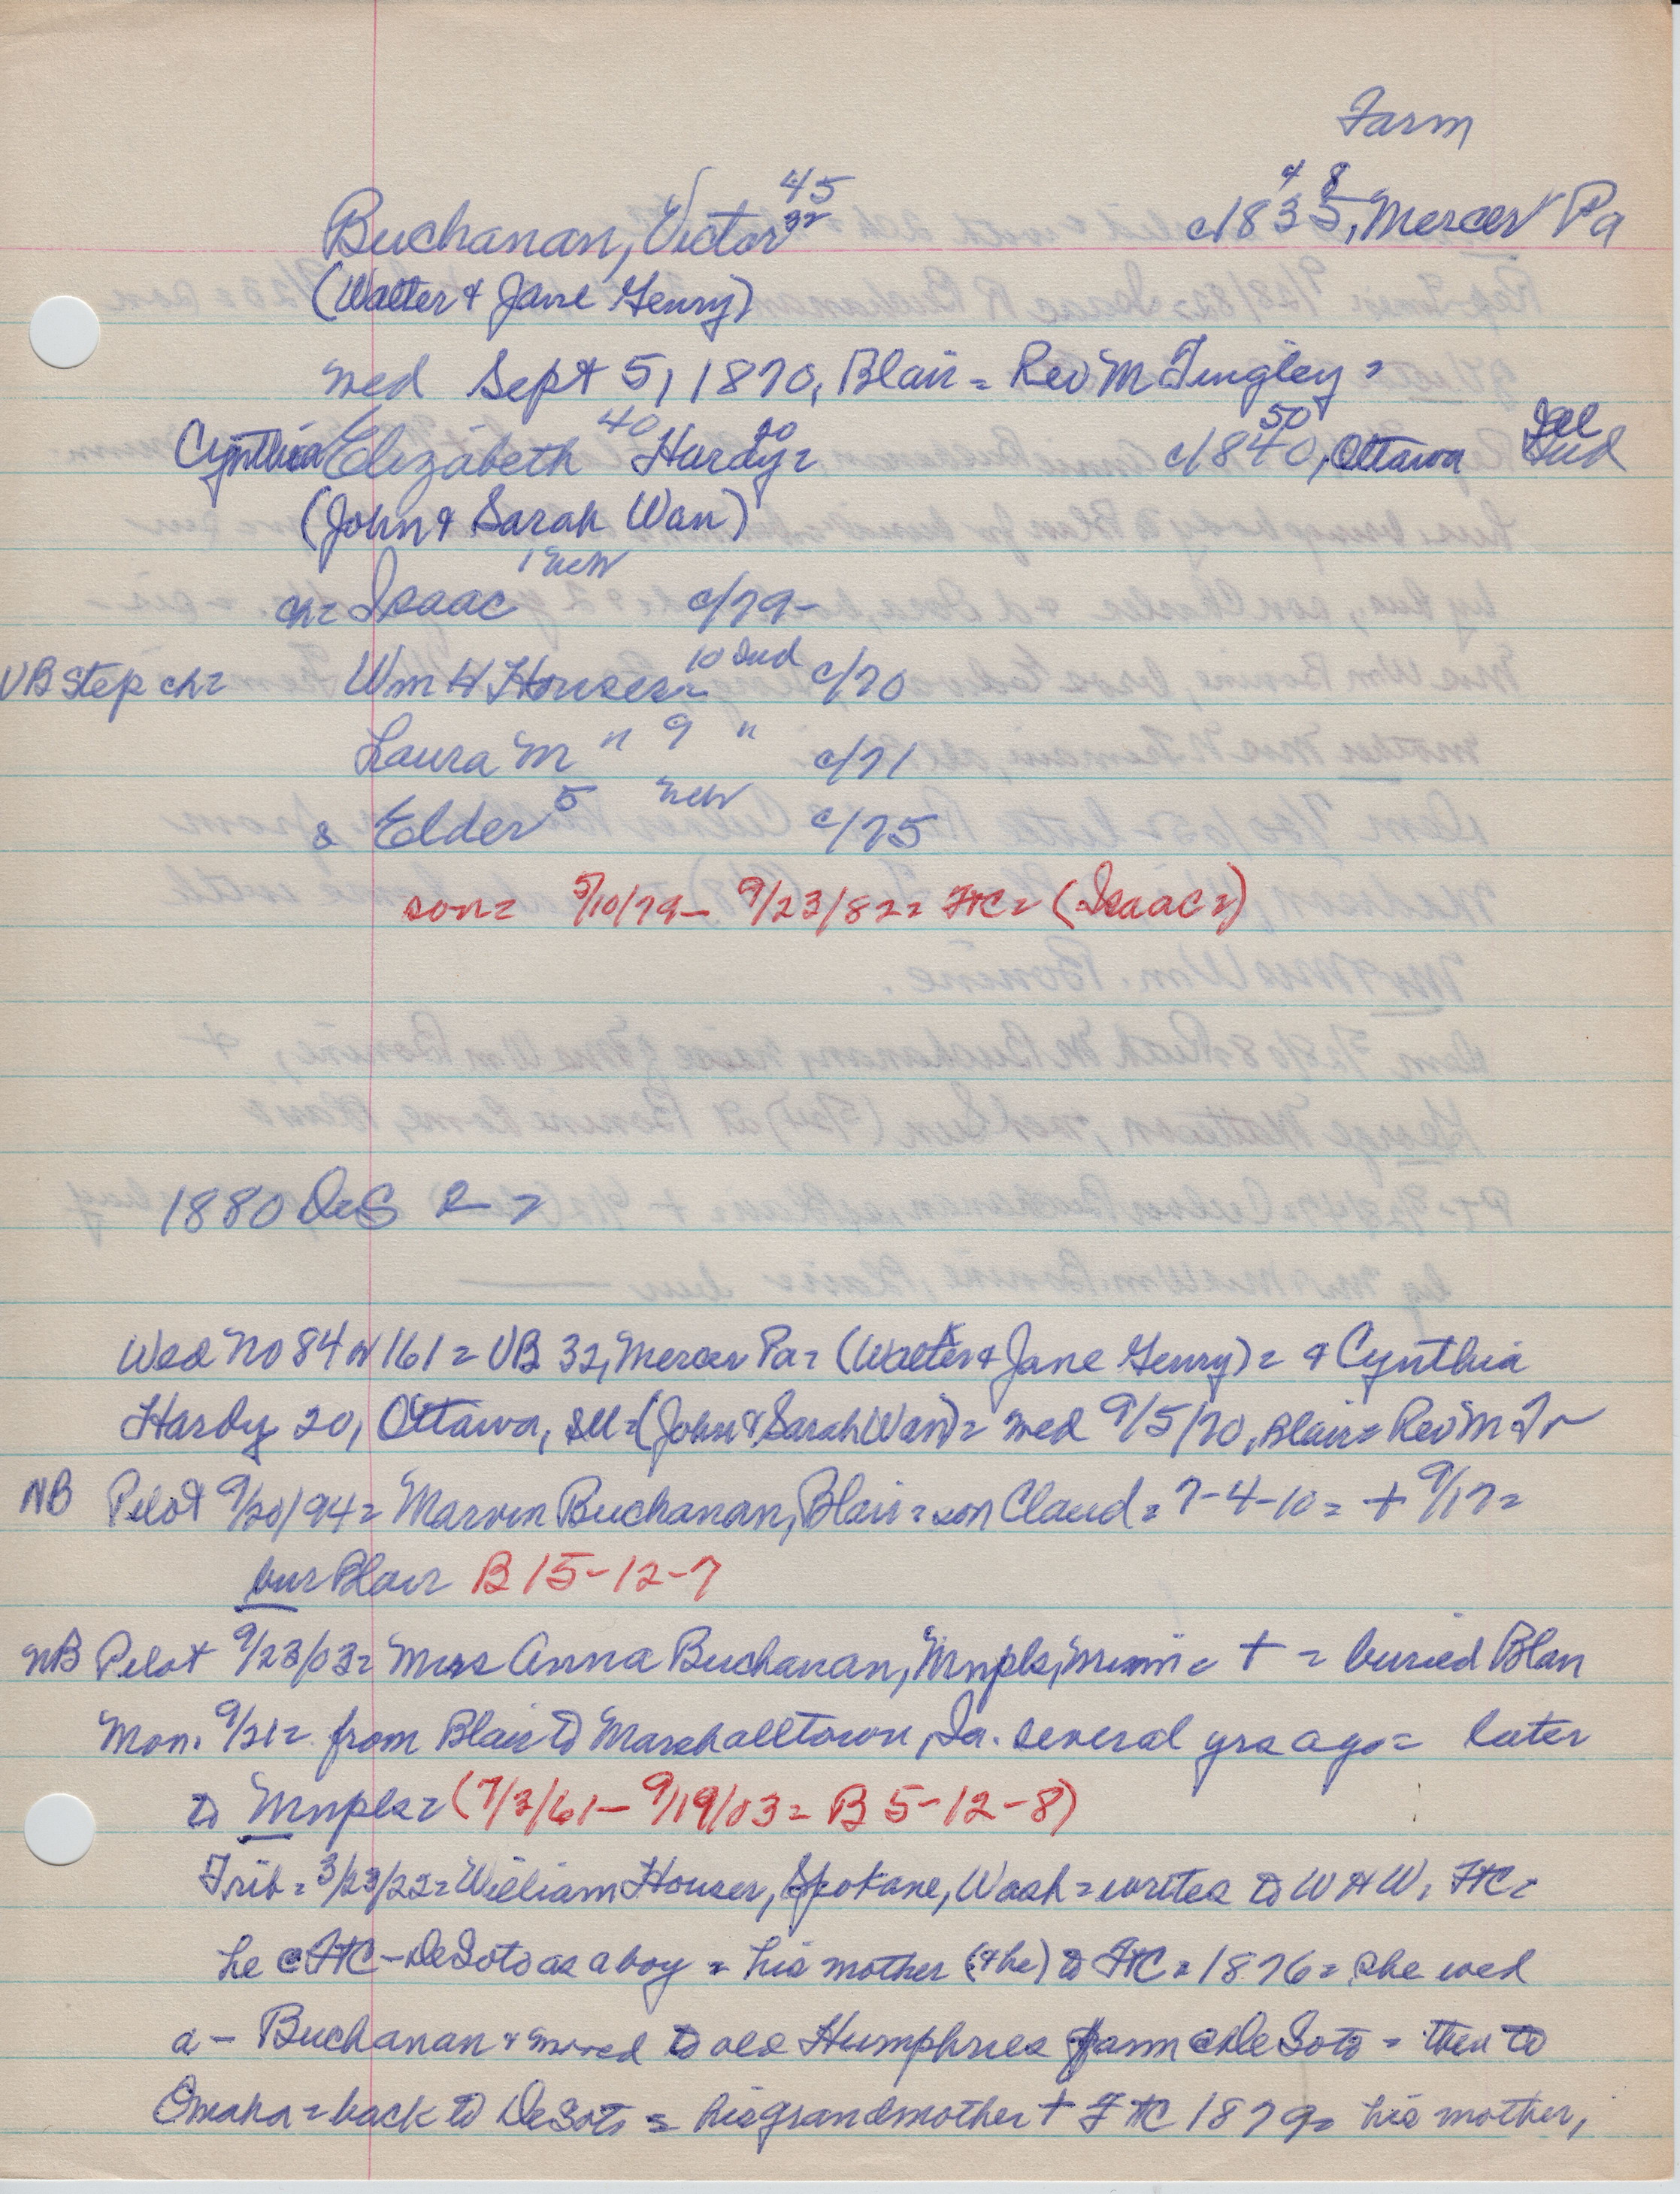 Farm
45 4 8
Buchanan, Victor 32 c/1835, Mercer Pa
(Walter & Jane Henry)
wed Sept 5, 1870, Blair = Rev M Tingley =
40 20 50 Ill
Cynthia Elizabeth Hardy = c/1840, Ottawa Ind
(John & Sarah Wan)
ch = Isaac 1 Neb c/79-
VB Step ch = Wm H Houser = 10 Ind c/70
Laura M " 9 " c/71
& Elder 5 Neb c/75
son = 5/10/79 - 9/23/82 = FtC = (Isaac =)
1880 DeS 2 =
Wed No 84 or 161 = VB 32, Mercer Pa = (Walter & Jane Henry) = & Cynthia
Hardy 20, Ottawa, Ill = (John & Sarah Wan) = wed 9/5/70, Blair = Rev M T
NB Pilot 9/20/94 = Marvin Buchanan, Blair = son Claud = 7-4-10 = + 9/17 =
bur Blair B 15-12-7
NB Pilot 9/23/03 = Mrs Anna Buchanan, Mnpls, Minn = + = buried Blair
Mon. 9/21 = from Blair to Marshalltown, Ia. several yrs ago = later
to Mnpls = (7/3/61 - 9/19/03 = B 5-12-8)
Trib = 3/23/22 = William Houser, Spokane, Wash = writes to W H W, FtC =
he @ FtC - DeSoto as a boy = his mother (& he) to FtC = 1876 = she wed
a - Buchanan & moved to old Humphries farm @ DeSoto = then to
Omaha = back to DeSoto = his grandmother + FtC 1879 = his mother,